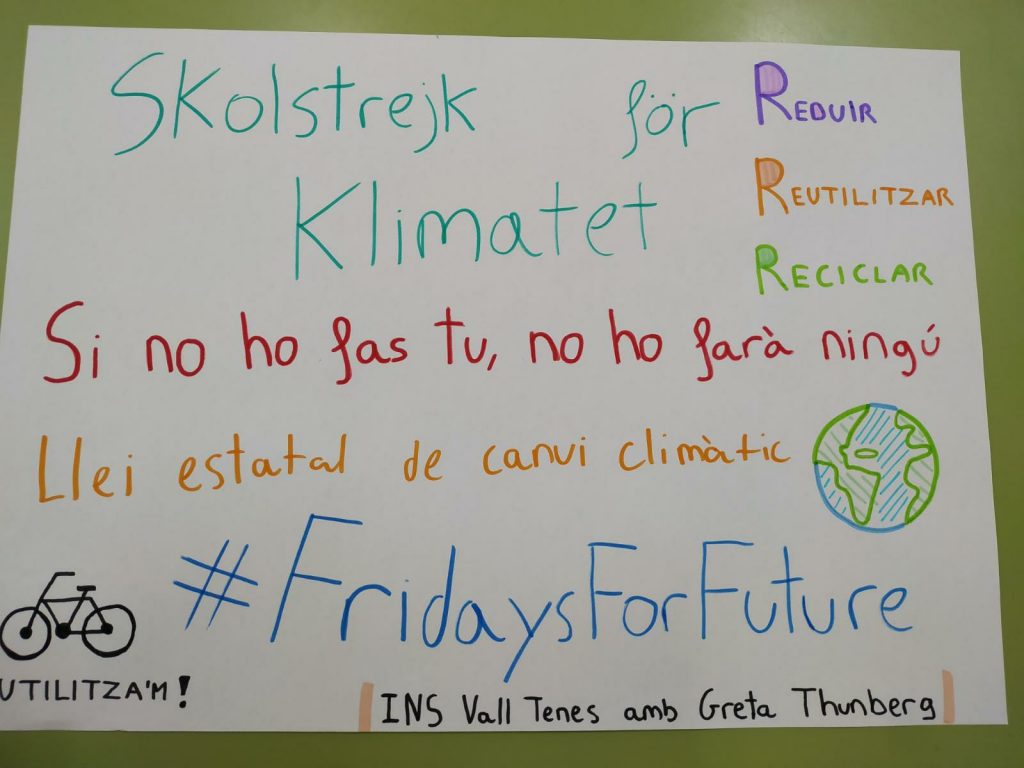 Skolstrejk för
Klimatet
REDUIR
REUTILITZAR
RECICLAR
Si no ho fas tu, no ho farà ningú
Llei estatal de canvi climàtic
#FridaysForFuture
UTILITZA'M!
INS Vall Tenes amb Greta Thunberg